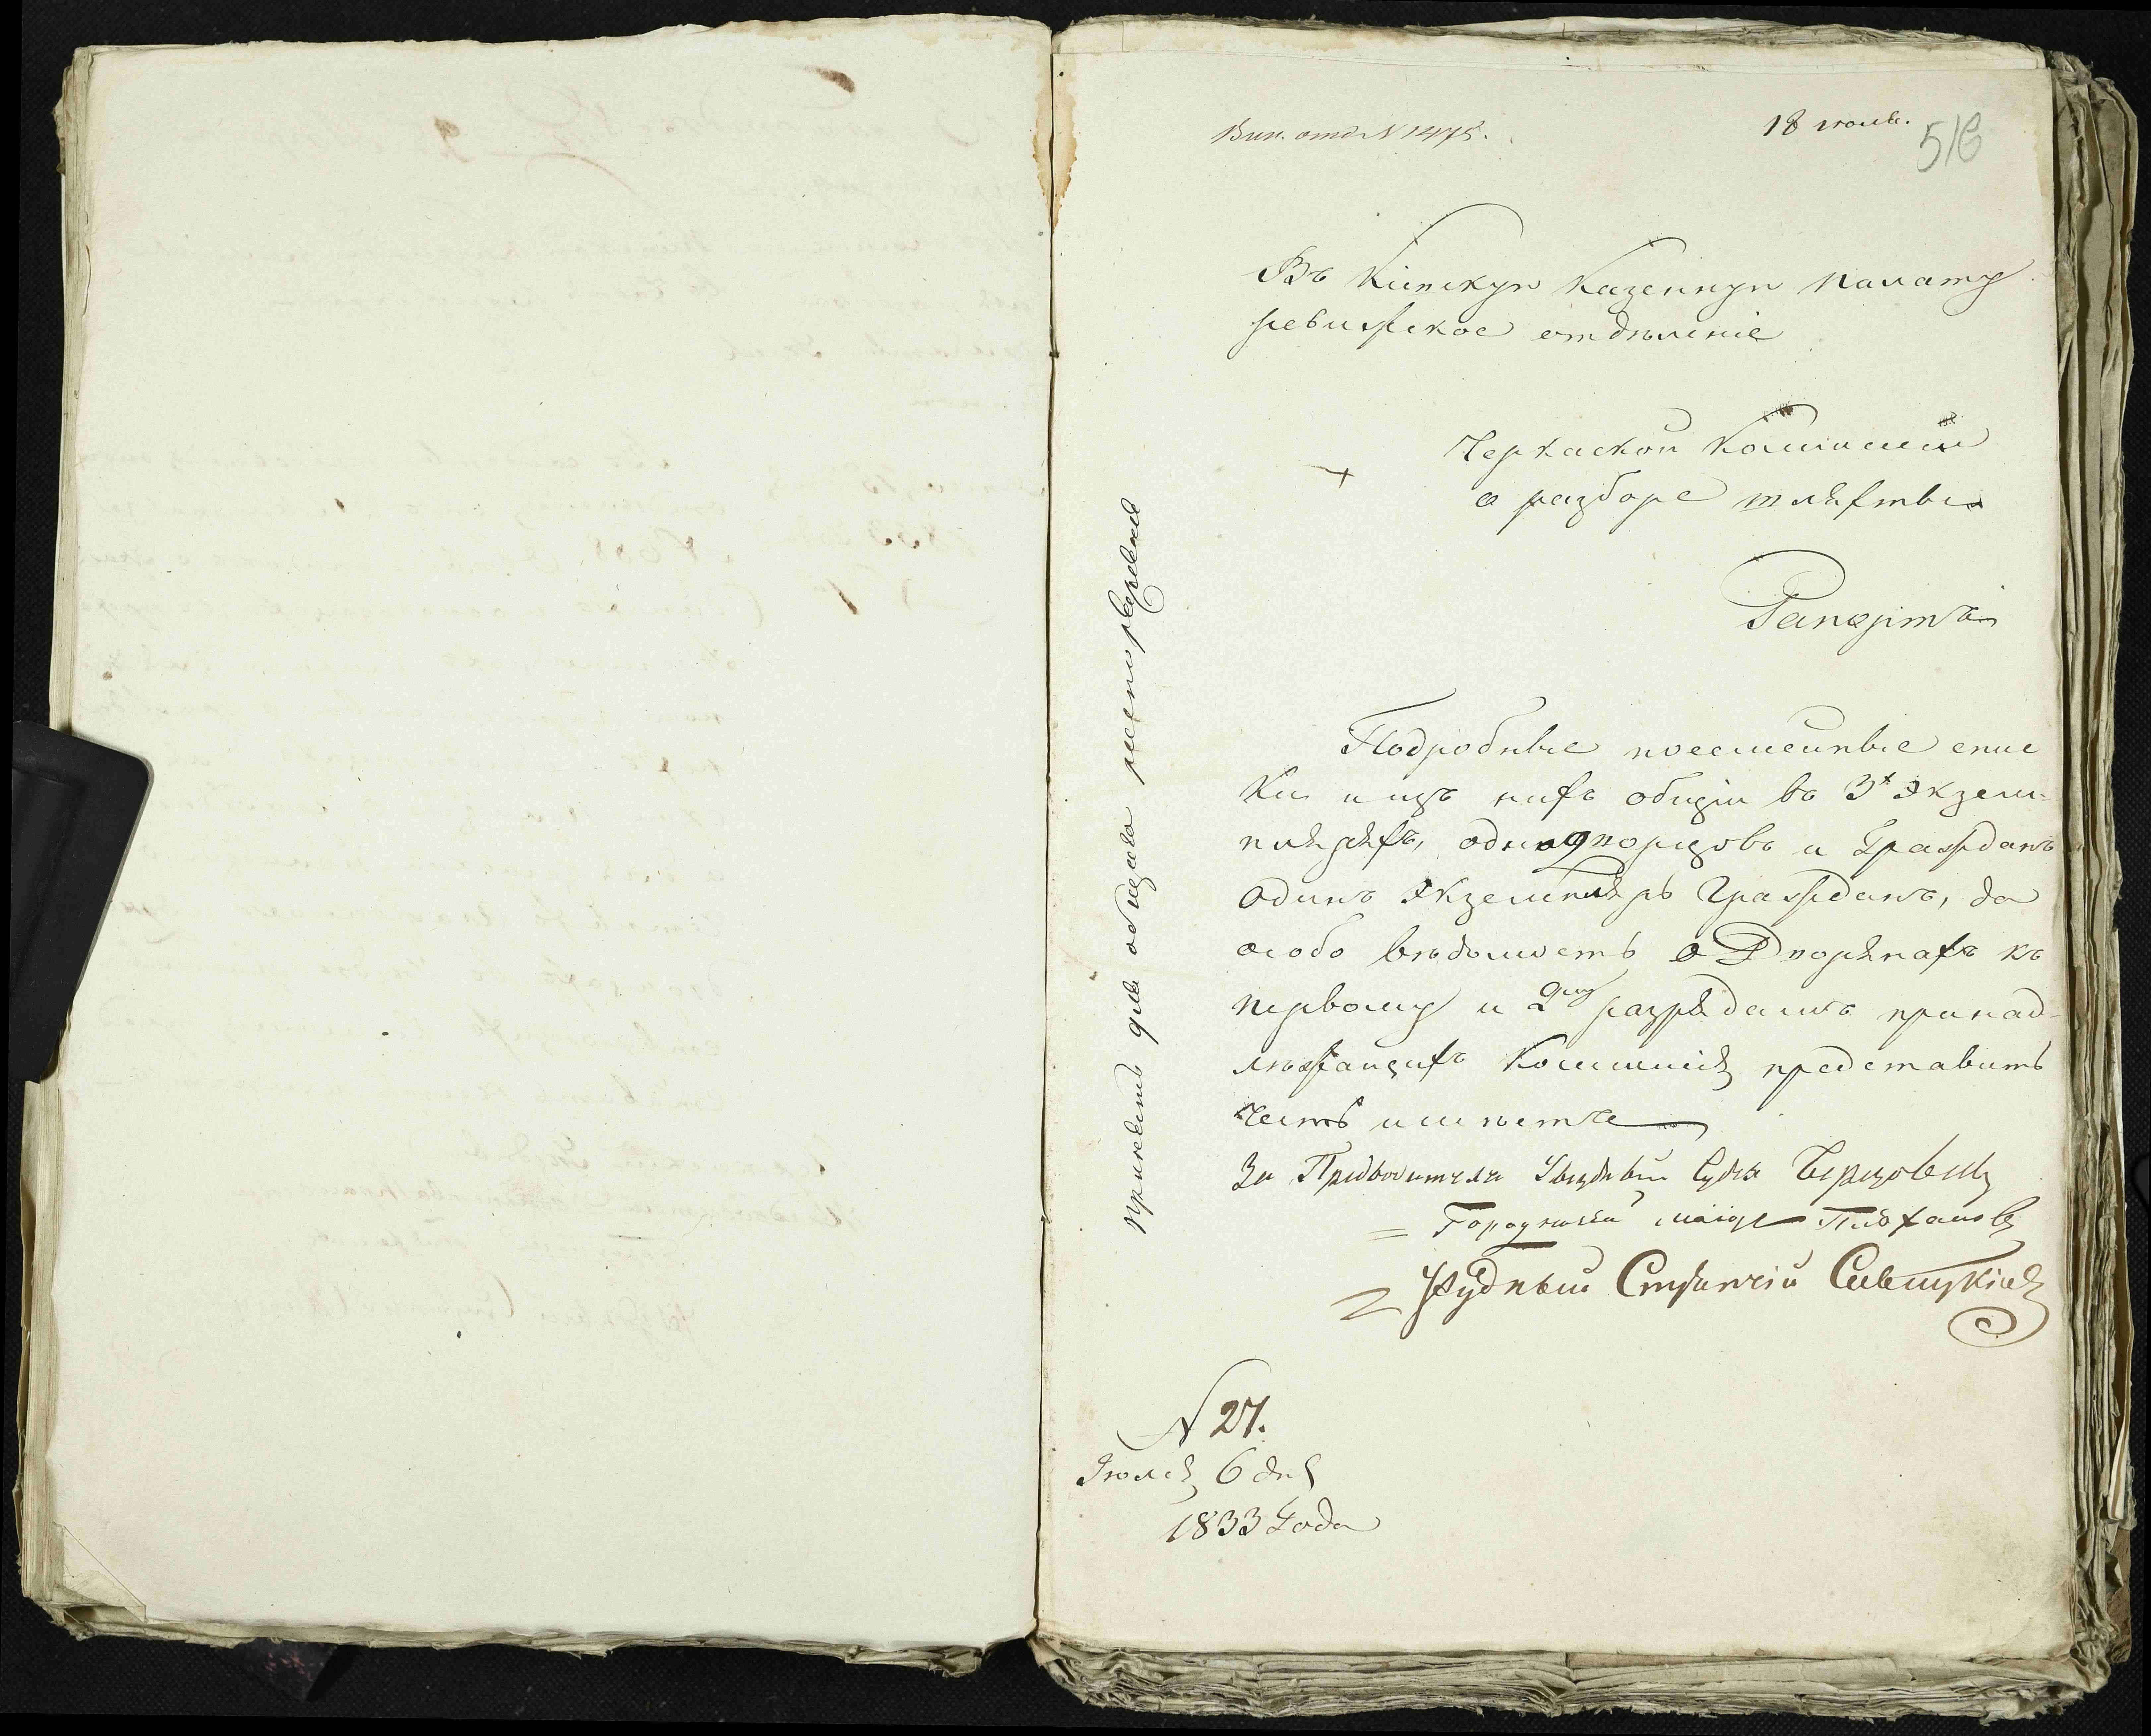 18 июля.
516
Въ Кіевскую Казенную палату
ревизское отдѣленіе
Черкаской Коммисіи
о разборе шляхты
Рапортъ
Подробные посемейные спис
ки и изъ нихъ общіи въ 3х Экзем-
плярахъ, однодворцовъ и Гражданъ
одинъ Экземпляръ Гражданъ, да
особо вѣдомость о Дворянахъ къ
первому и 2му разрядамъ принад-
лѣжащихъ Коммисія представить
честь имѣетъ
За Предводителя Уездный Судья
Городничій маіоръ
Уѣздный Стряпчій
Приобщить для общаго разсмотренія
N 27.
Іюля 6 дня
1833 Года